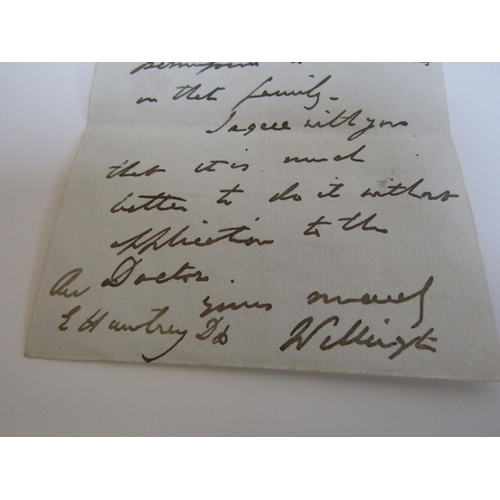 permission
on that family.
I agree with you
that it is much
better to do it without
application to the
Doctor.
yours
E Hawtrey DD Wellington